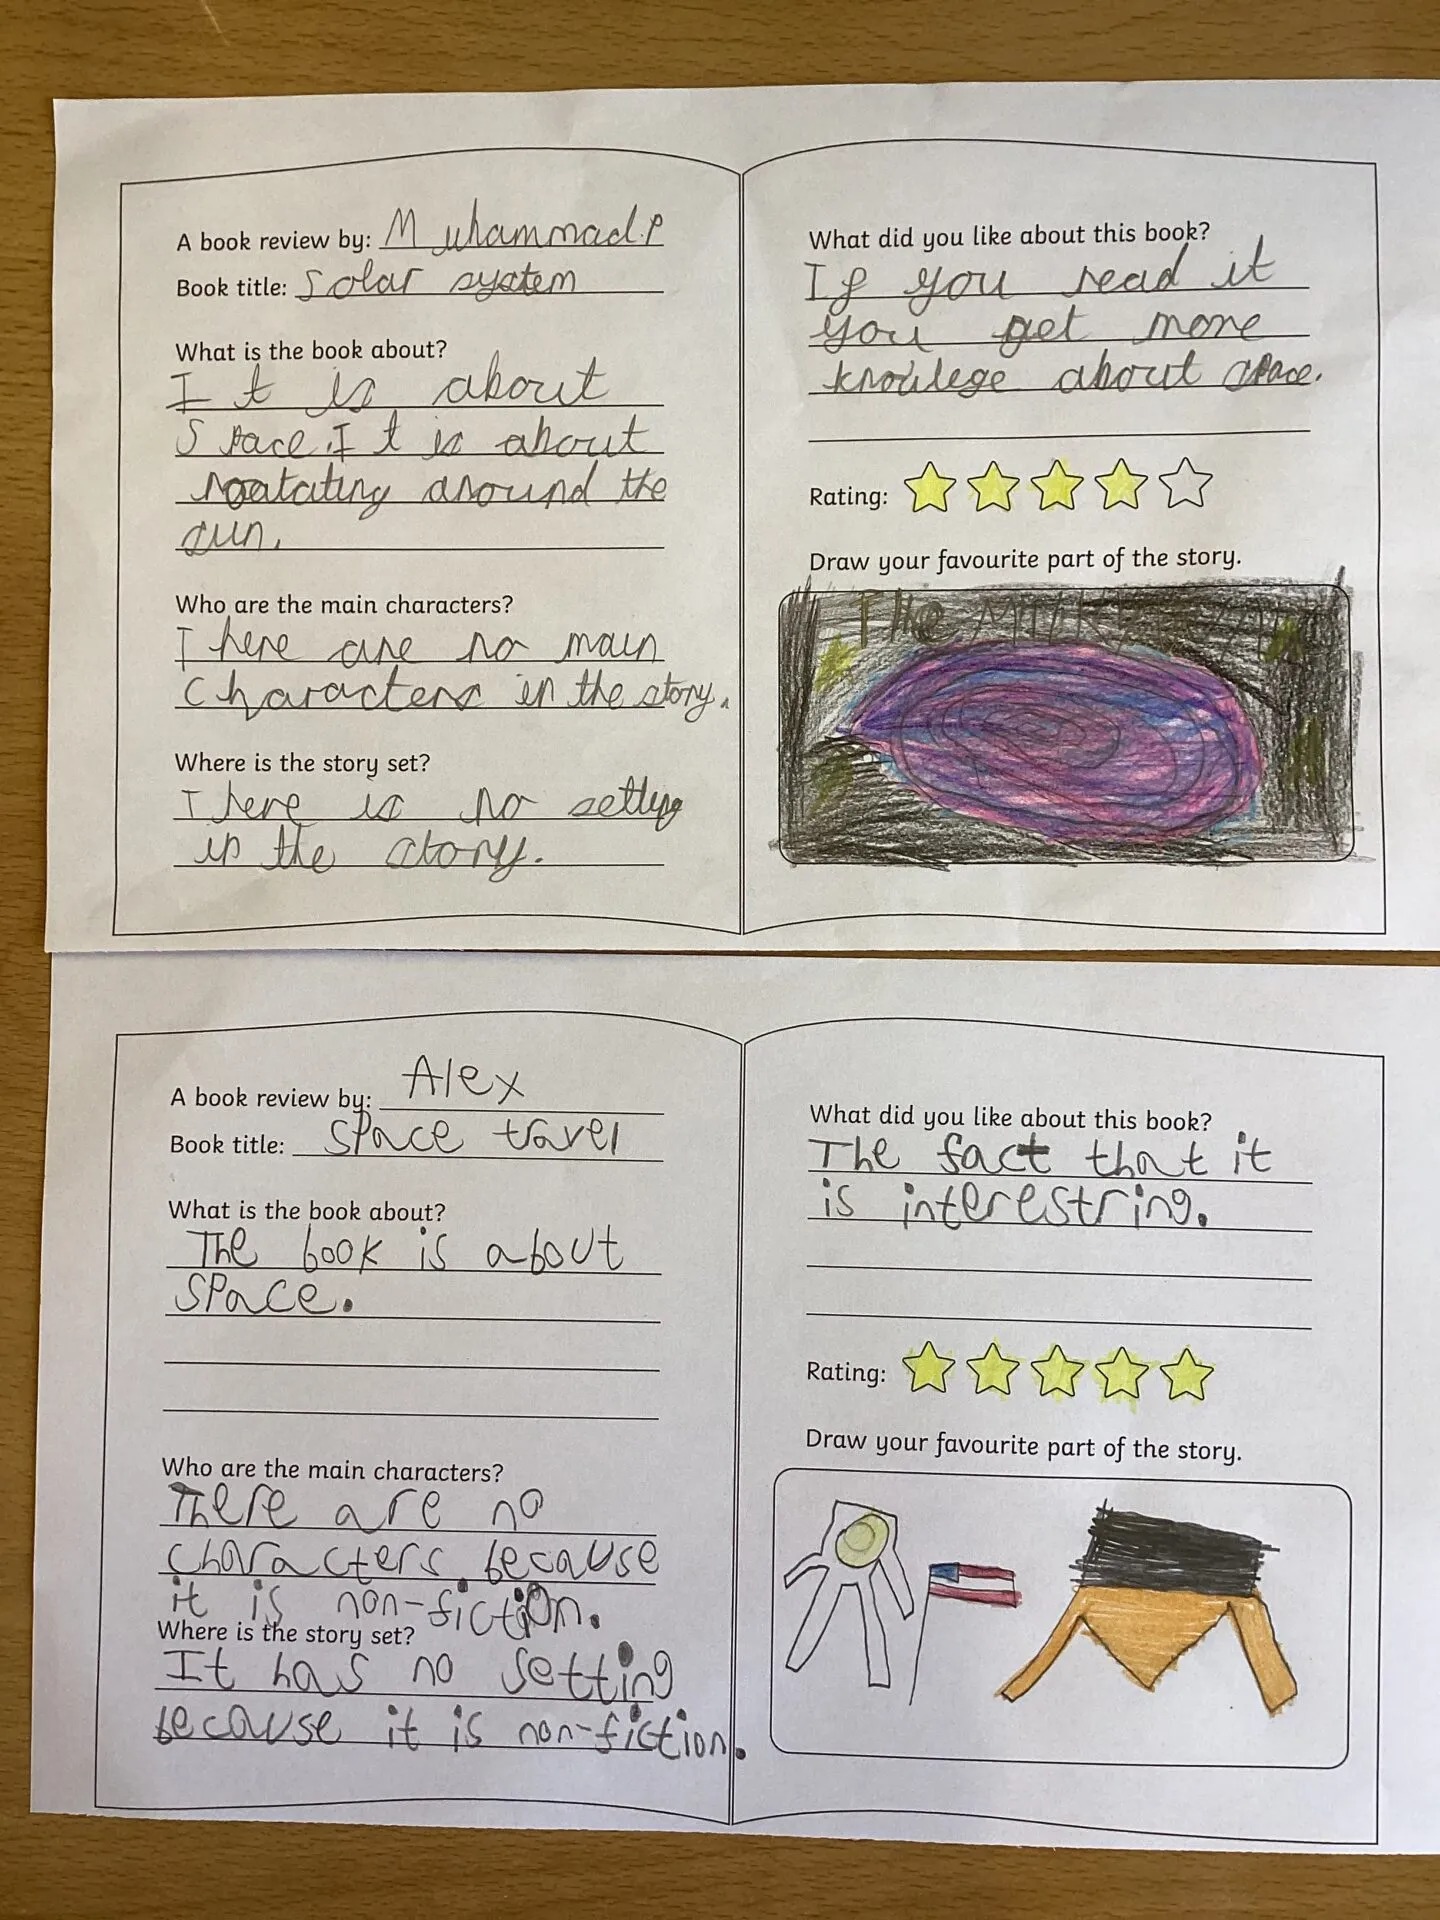 A book review by: Muhammad.P
Book title: Solar system
What is the book about?
It is about
Space. It is about
roatating around the
sun.
Who are the main characters?
There are no main
Characters in the story.
Where is the story set?
There is no setting
in the story.
What did you like about this book?
If you read it
you get more
knowlege about space.
Rating:
Draw your favourite part of the story.
The Milky way
A book review by: Alex
Book title: Space travel
What is the book about?
The book is about
Space.
Who are the main characters?
There are no
characters because
it is non-fiction.
Where is the story set?
It has no setting
because it is non-fiction.
What did you like about this book?
The fact that it
is interestring.
Rating:
Draw your favourite part of the story.